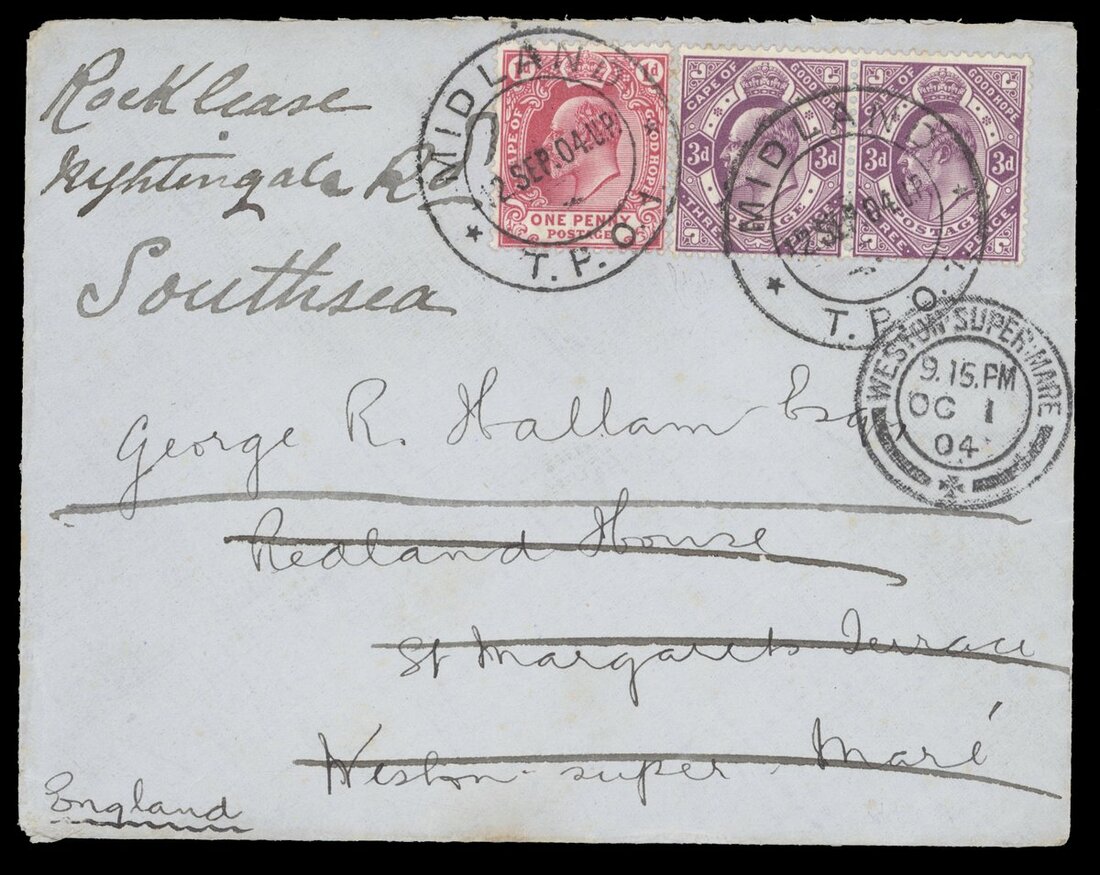 Rocklease
Nightingale Rd
Southsea
1d 1d
CAPE OF GOOD HOPE
ONE PENNY
POSTAGE
MIDLAND
12 SEP.04.UP.
T.P.O.
CAPE OF GOOD HOPE
3d 3d
THREE PENCE
POSTAGE
CAPE OF GOOD HOPE
3d 3d
POSTAGE
THREE PENCE
MIDLAND
12 SEP.04.UP.
T.P.O.
WESTON-SUPER-MARE
9.15.PM
OC 1
04
George R. Hallam Esq
Redland House
St Margarets Terrace
Weston-super-Maré
England